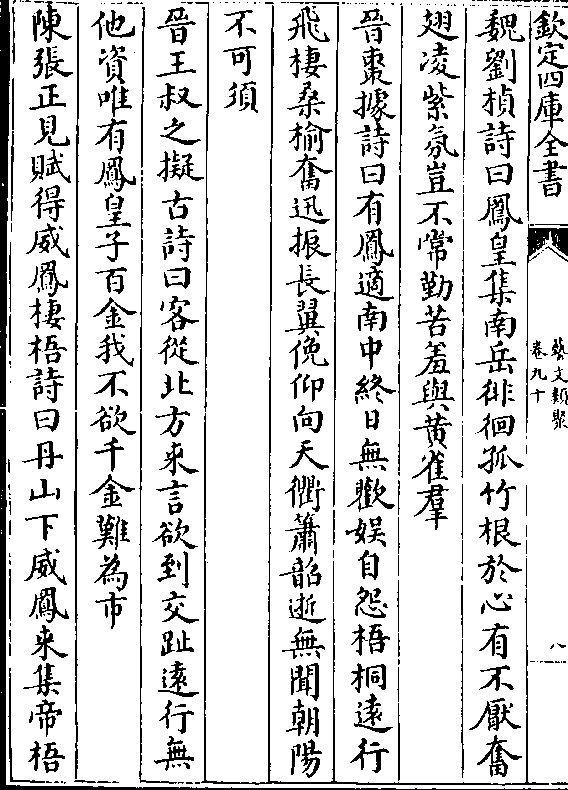 欽定四庫全書
藝文類聚
卷九十
八
魏劉楨詩曰鳳皇集南岳徘徊孤竹根於心有不厭奮
翅凌紫氛豈不常勤苦羞與黄雀羣
晉棗據詩曰有鳳適南中終日無歡娱自怨梧桐遠行
飛棲桑榆奮迅振長翼俛仰向天衢簫韶逝無聞朝陽
不可須
晉王叔之擬古詩曰客從北方來言欲到交趾遠行無
他資唯有鳳皇子百金我不欲千金難為市
陳張正見賦得威鳳棲梧詩曰丹山下威鳳来集帝梧